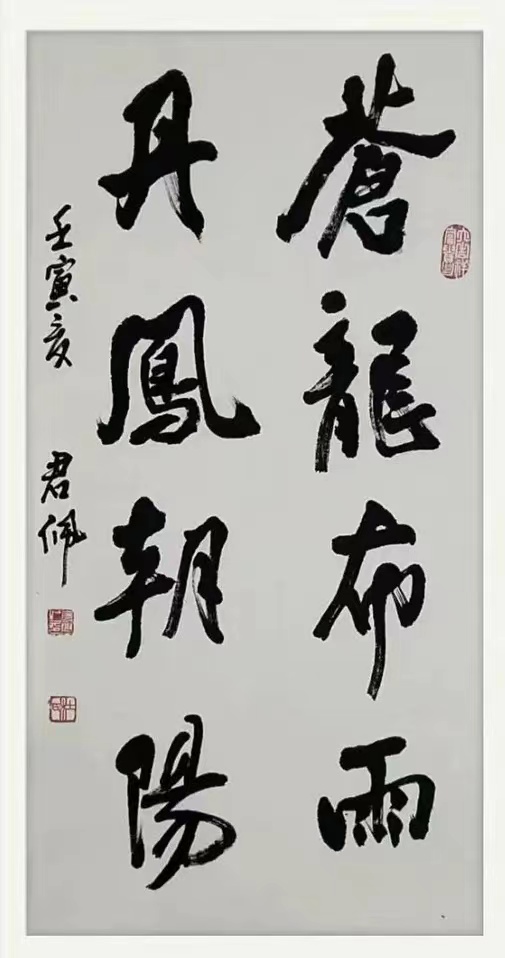 蒼龍布雨
丹鳳朝陽
壬寅夏 君佩